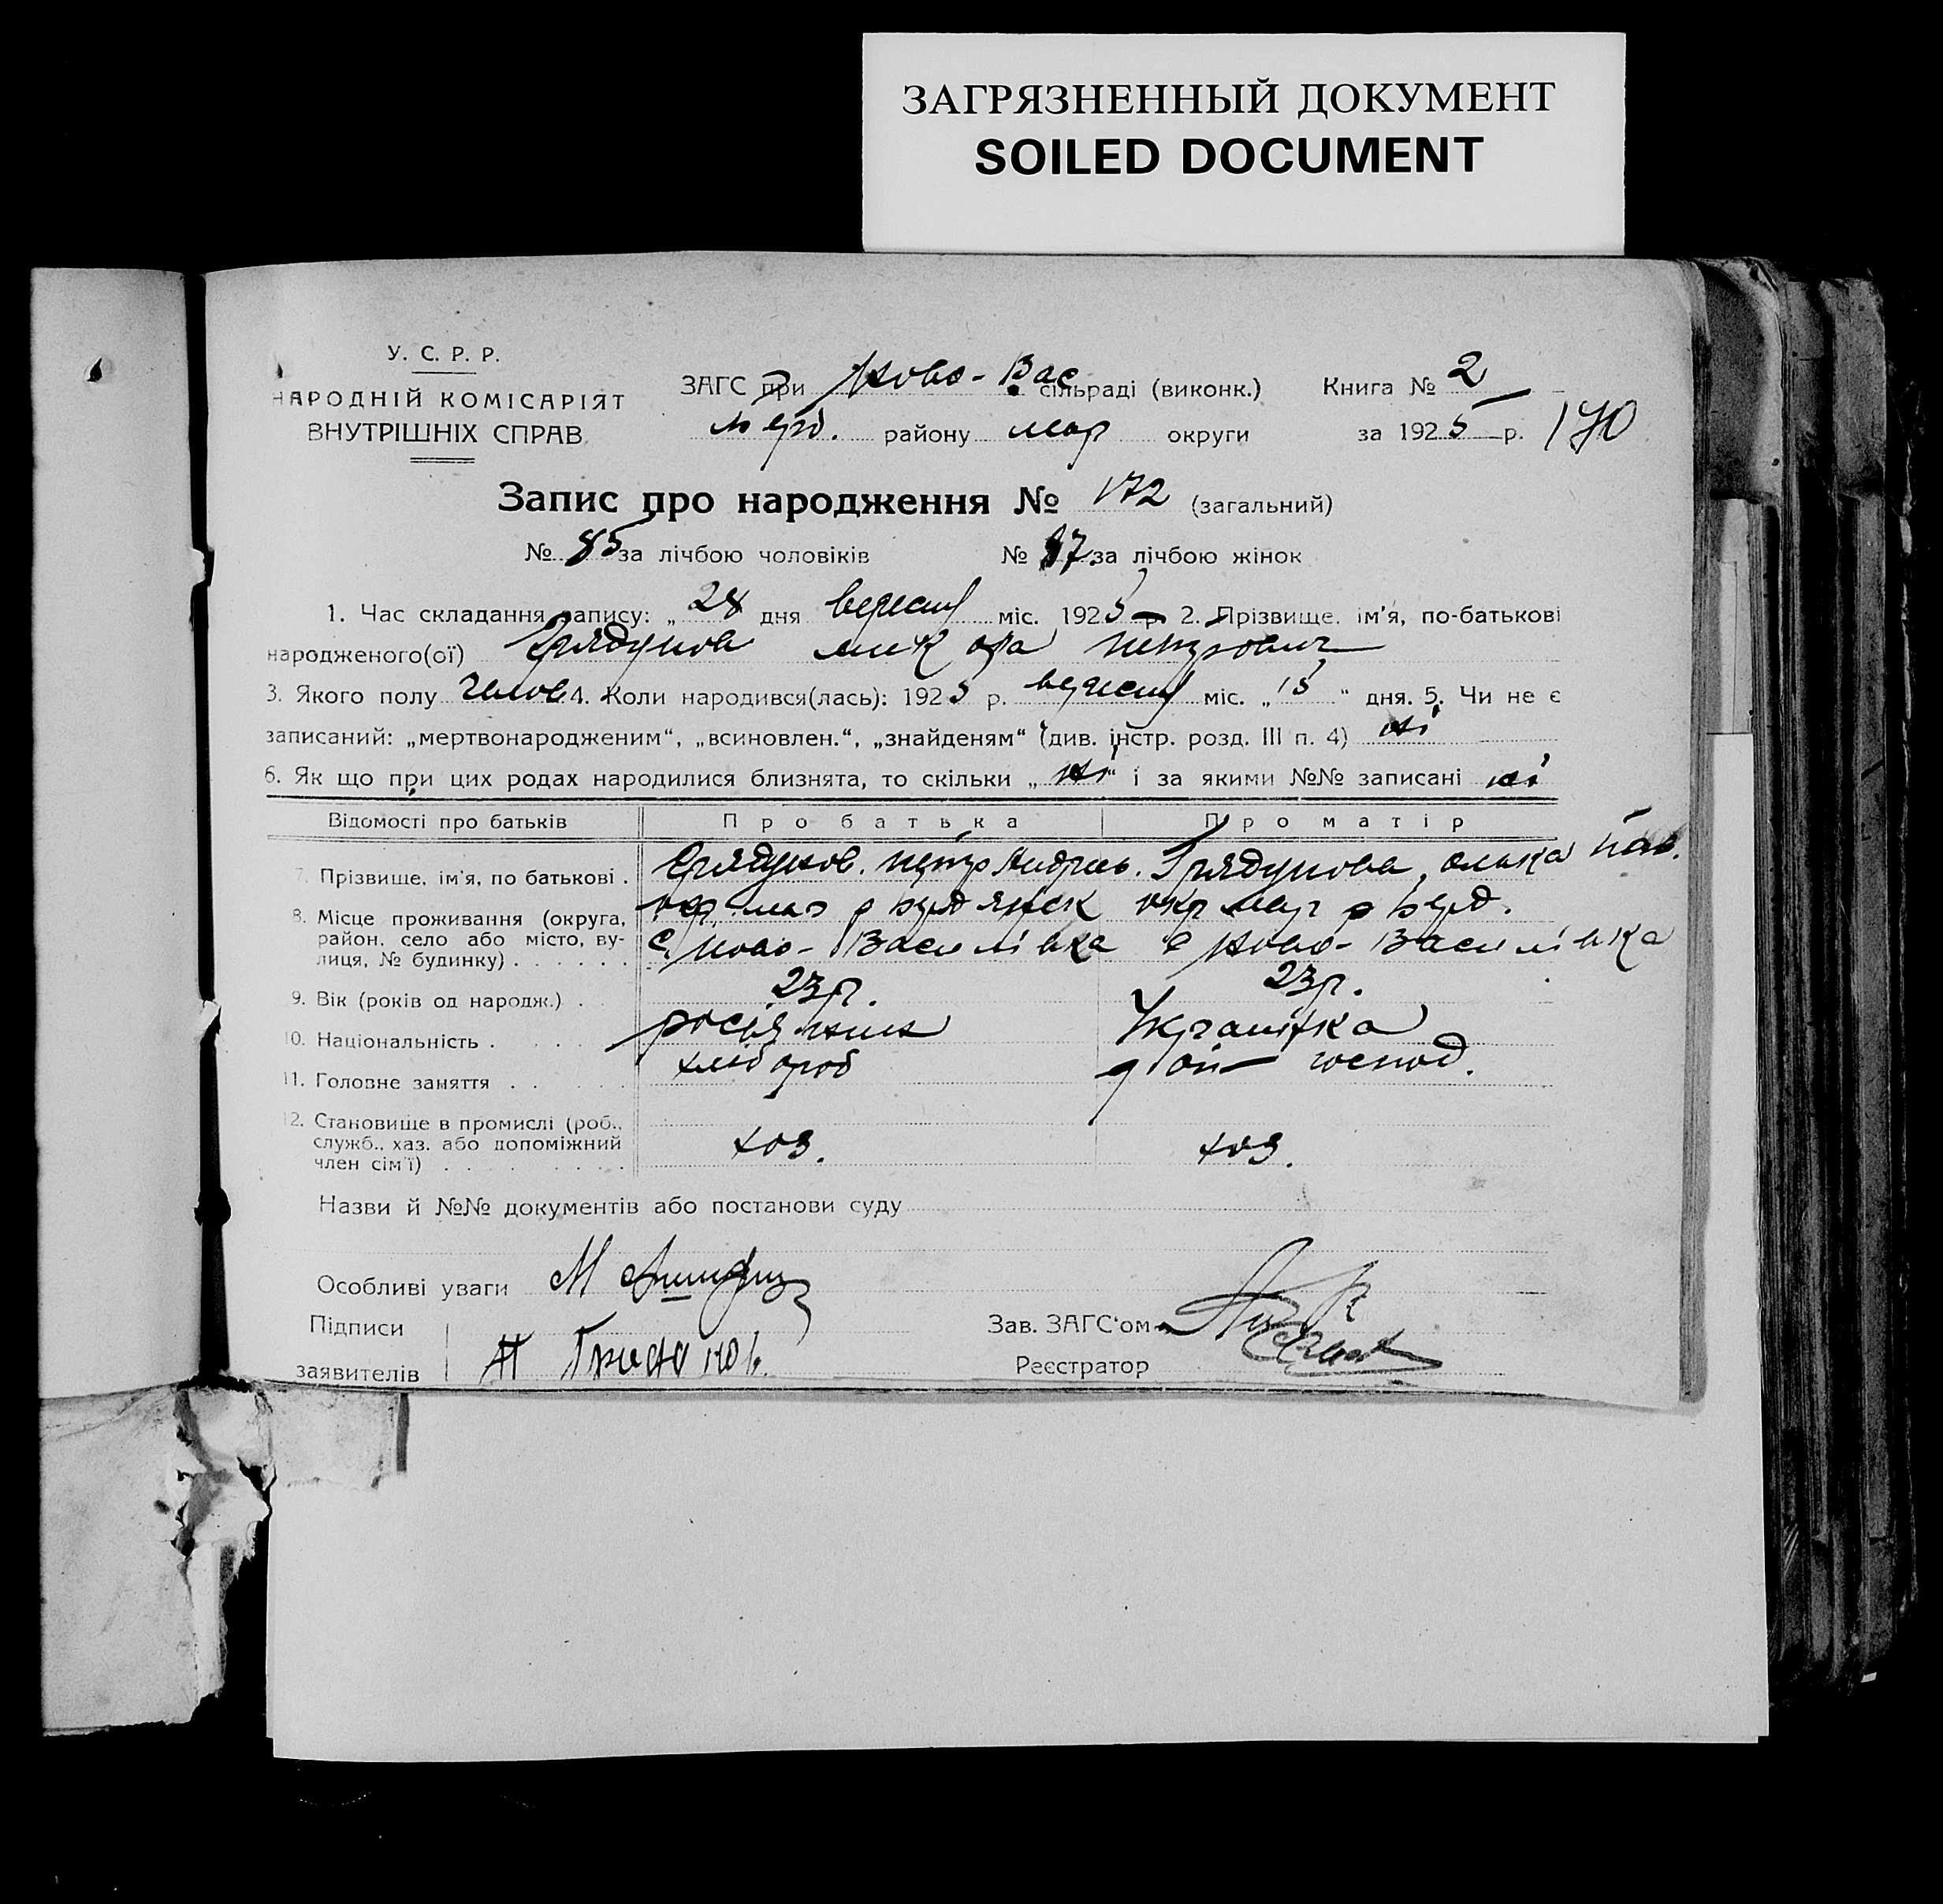 ЗАГРЯЗНЕННЫЙ ДОКУМЕНТ
SOILED DOCUMENT
У. С. Р. Р.
НАРОДНІЙ КОМІСАРІЯТ
ВНУТРІШНІХ СПРАВ
ЗАГС при Ново-Вас сільраді (виконк.) Книга № 2
Берд. району мар округи за 1925 р. 170
Запис про народження № 172 (загальний)
№ 85 за лічбою чоловіків № 87 за лічбою жінок
1. Час складання запису: „28 дня вересня міс. 1925 р. 2. Прізвище, ім'я, по-батькові
народженого(ої) Грядунов Петрович
3. Якого полу челов 4. Коли народився(лась): 1925 р. вересня міс. „15“ дня. 5. Чи не є
записаний: „мертвонародженим“, „всиновлен.“, „знайденям“ (див. інстр. розд. III п. 4) ні
6. Як що при цих родах народилися близнята, то скільки „ні“ і за якими №№ записані ні
Відомості про батьків Про батька Про матір
7. Прізвище, ім'я, по батькові . Грядунов. Петр Андрієв. Грядунова, Пав.
8. Місце проживання (округа, окр. мар р Бердянск окр мар р Берд.
район, село або місто, ву- с Ново-Василівка с Ново-Василівка
лиця, № будинку) . . . . . .
9. Вік (років од народж.) . 23 р. 23 р.
10. Національність . . . . . росіянин Українка
11. Головне заняття . . . . . хлібороб дом господ.
12. Становище в промислі (роб.,
служб., хаз. або допоміжний хоз. хоз.
член сім'ї) . . . . . . . .
Назви й №№ документів або постанови суду
Особливі уваги
Підписи Зав. ЗАГС'ом
заявителів Реєстратор